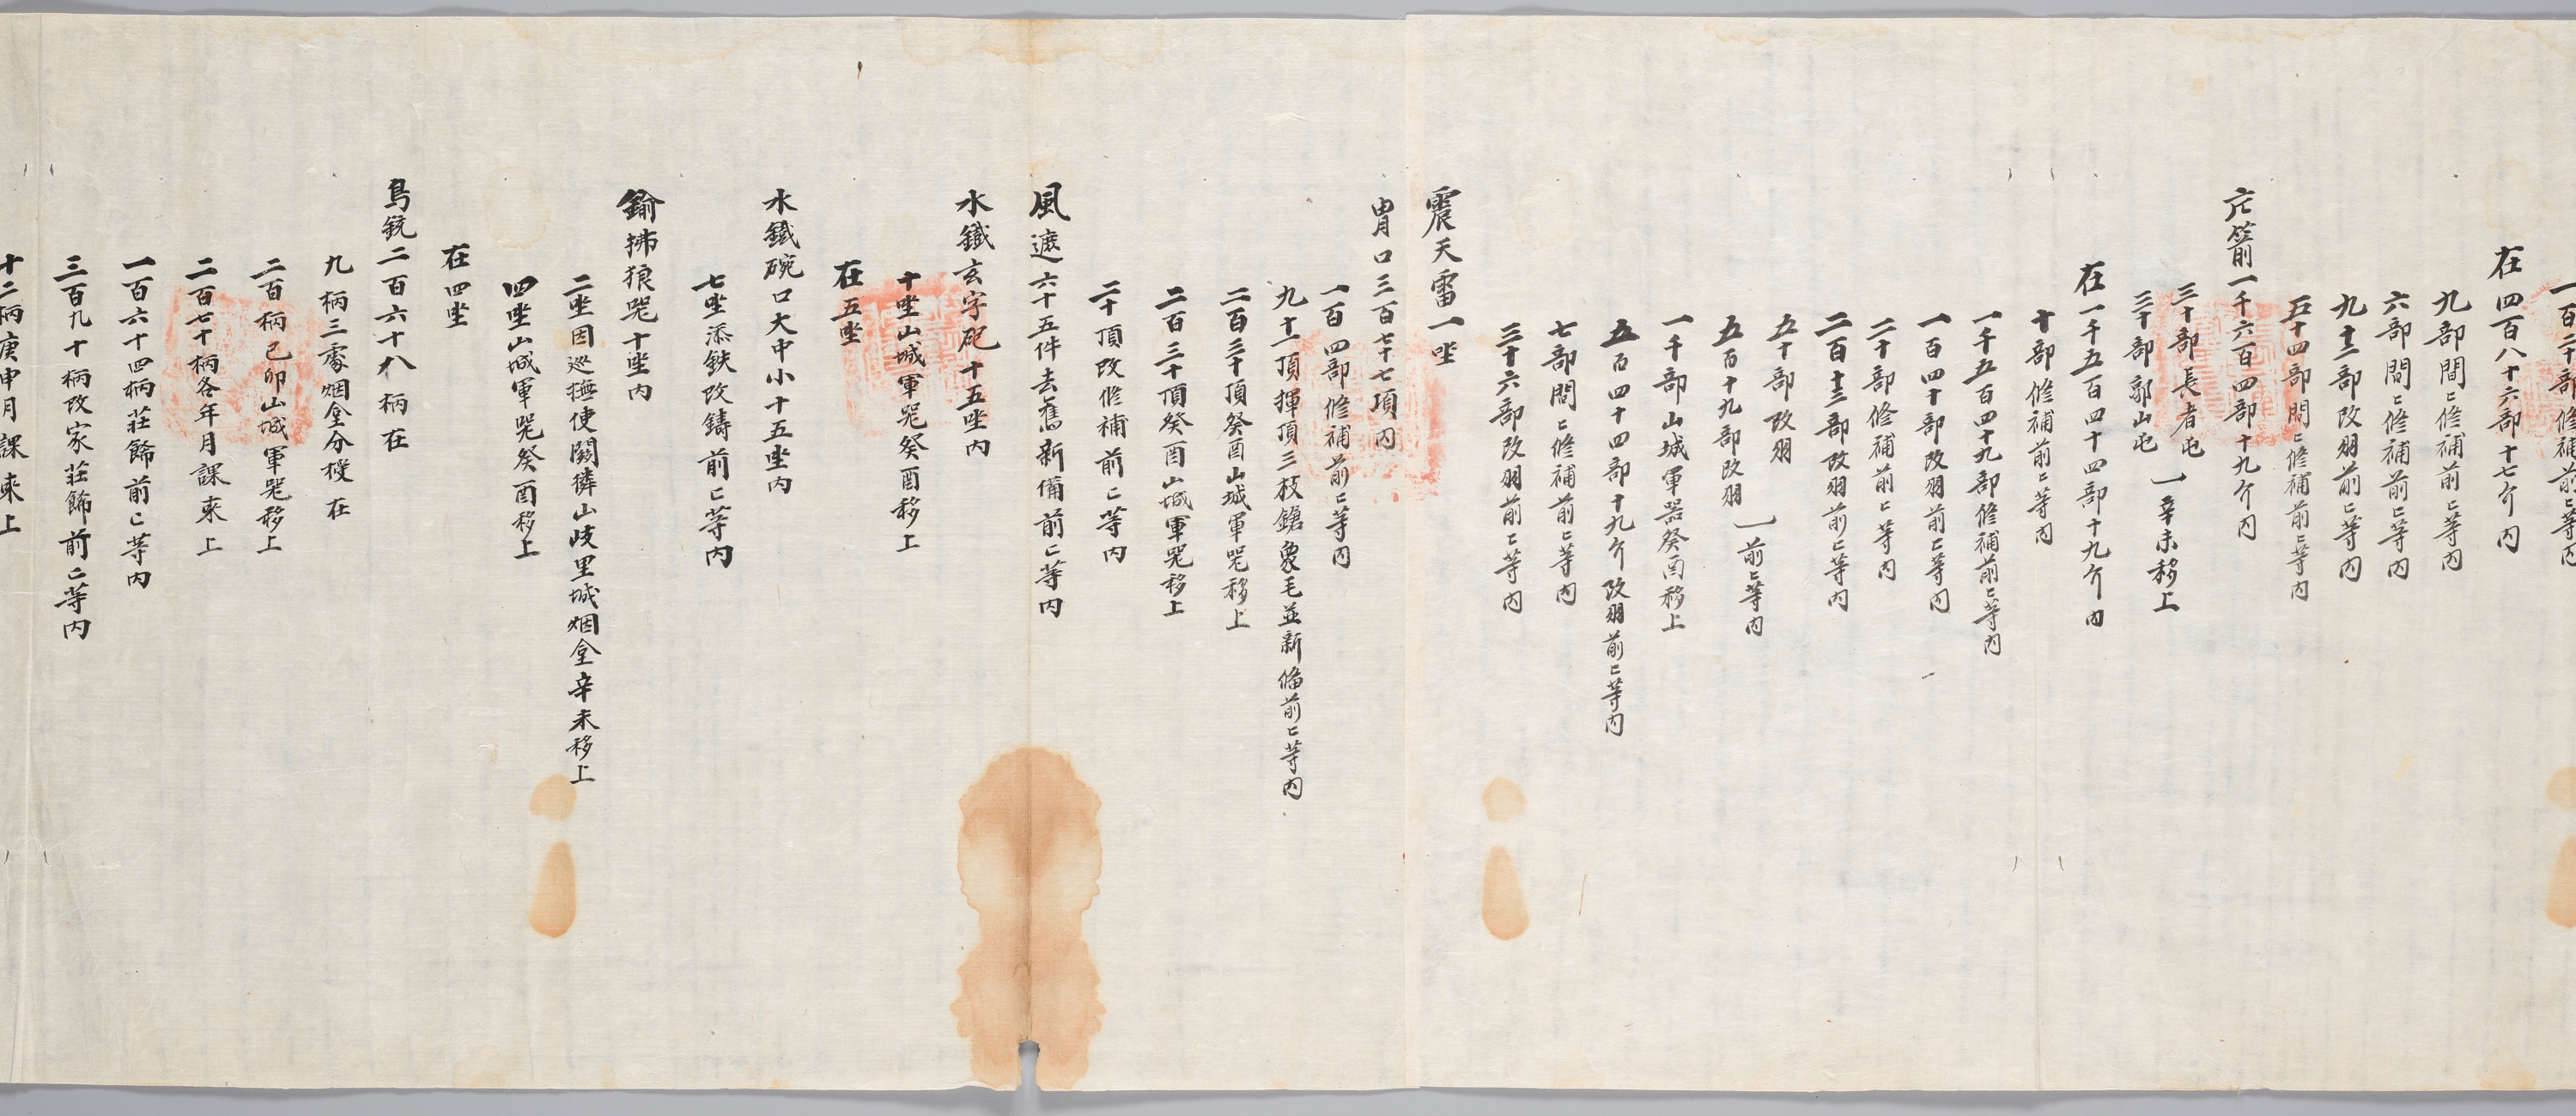 一百二十部修補前已等內
在四百八十六部十七介內
九部間間修補前已等內
六部間間修補前已等內
九十三部改羽前已等內
五十四部間間修補前已等內
箭一千六百四部十九介內
三十部長者屯
三十部郭山屯
辛未移上
在一千五百四十四部十九介內
十部修補前已等內
一千五百四十九部修補前已等內
一百四十部改羽前已等內
二十部修補前已等內
二百十三部改羽前已等內
五十部改羽
五百十九部改羽
前已等內
一千部山城軍器癸酉移上
五百四十四部十九介改羽前已等內
七部間間修補前已等內
三十六部改羽前已等內
震天雷一坐
冑口三百七十七頂內
一百四部修補前已等內
九十一頂揮頂三枝鎗象毛並新俻前已等內
二百三十頂癸酉山城軍器移上
二百三十頂癸酉山城軍器移上
二十頂改修補前已等內
風遮六十五件去舊新備前已等內
水鐵玄字砲十五坐內
十坐山城軍器癸酉移上
在五坐
水鐵碗口大中小十五坐內
七坐添鉄改鑄前已等內
鍮拂狼器十坐內
二坐因巡撫使關獜山岐里城烟坮辛未移上
四坐山城軍器癸酉移上
在四坐
鳥銃二百六十八柄在
九柄三處烟坮分授在
二百柄己卯山城軍器移上
二百七十柄各年月課來上
一百六十四柄莊餙前已等內
三百九十柄改家莊餙前已等內
十二柄庚申月課來上